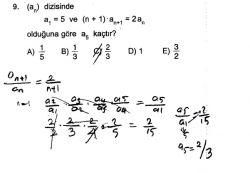 9. (aₙ) dizisinde
a₁ = 5 ve (n + 1)·aₙ₊₁ = 2aₙ
olduğuna göre a₅ kaçtır?
A) 1/5 B) 1/3 C) 2/3 D) 1 E) 3/2
aₙ₊₁/aₙ = 2/(n+1)
n=1 a₂/a₁ · a₃/a₂ · a₄/a₃ · a₅/a₄ = a₅/a₁
2/2 · 2/3 · 2/4 · 2/5 = 2/15
a₅/a₁ = 2/15
5
a₅ = 2/3